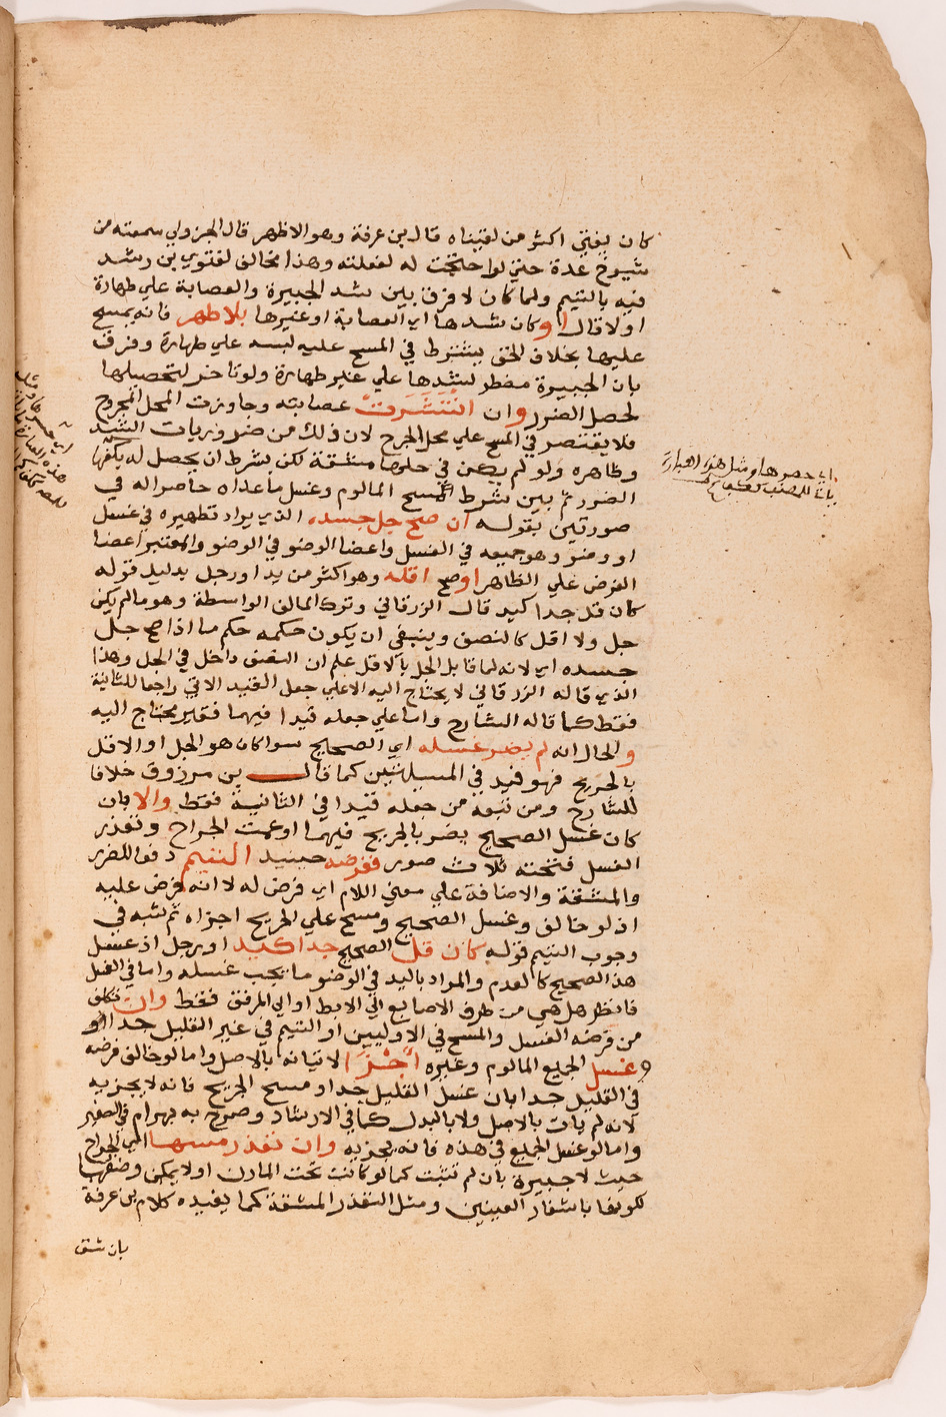 كان يفتي اكثر من لقيناه قال بن عرفة وهو الاظهر قال الجزولي سمعته من
شيوخ عدة حتي لو احتجت له لفعلته وهذا مخالف لفتوي بن رشد
فيه بالتيمم ولما كان لا فرق بين شد الجبيرة والعصابة علي طهارة
او لا قال او كان شدها اي العصابة او غيرها بلا طهر فانه يمسح
عليها بخلاف الخف يشترط في المسح عليه لبسه علي طهارة وفرق
بان الجبيرة مضطر لشدها علي غير طهارة ولو تاخر لتحصيلها
لحصل الضرر وان انتشرت عصابته وجاوزت المحل المجروح
فلا يقتصر في المسح علي محل الجرح لان ذلك من ضروريات الشد
وظاهره ولو لم يكن في حلها مشقة لكن بشرط ان يحصل له بكفها
الضرر ثم بين شرط المسح المالوم وغسل ما عداه حاصرا له في
صورتين بقوله ان صح جل جسده الذي يراد تطهيره في غسل
او وضو وهو جميعه في الغسل واعضا الوضو في الوضو والمعتبر اعضا
الفرض علي الظاهر او صح اقله وهو اكثر من يد او رجل بدليل قوله
كان قل جدا كيد قال الزرقاني وترك المالف الواسطة وهو ما لم يكن
جل ولا اقل كالنصف وينبغي ان يكون حكمه حكم ما اذا صح جل
جسده اي لانه لما قابل الجل بالاقل علم ان النصف داخل في الجل وهذا
الذي قاله الزرقاني لا يحتاج اليه الا علي جعل القيد الاتي راجعا للثانية
فقط كما قاله الشارح واما علي جعله قيدا فيهما فغير محتاج اليه
والحال انه لم يضر غسله اي الصحيح سوا كان هو الجل او الاقل
بالجريح فهو قيد في المسيلتين كما قال بن مرزوق خلافا
للشارح ومن تبعه من جعله قيدا في الثانية فقط والا بان
كان غسل الصحيح يضر بالجريح فيهما او عمت الجراح وتعذر
الغسل فتحته ثلاث صور ففرضه حينيذ التيمم دفعا للضرر
والمشقة والاضافة علي معني اللام اي فرض له لا انه فرض عليه
اذ لو خالف وغسل الصحيح ومسح علي الجريح اجزاه ثم شبه في
وجوب التيمم قوله كان قل الصحيح جدا كيد او رجل اذ غسل
هذا الصحيح كالعدم والمراد باليد في الوضو ما يجب غسله واما في الغسل
فانظر هل هي من طرف الاصابع الي الابط او الي المرفق فقط وان تكلف
من فرضه الغسل والمسح في الاوليين او التيمم في غير القليل جدا او
وغسل الجميع المالوم وغيره اجزا لاتيانه بالاصل واما لو خالف فرضه
في القليل جدا بان غسل القليل جدا ومسح الجريح فانه لا يجزيه
لانه لم يات بالاصل ولا بالبدل كما في الارشاد وصرح به بهرام في الصغير
واما لو غسل الجميع في هذه فانه يجزيه وان تعذر مسها اي الجراح
حيث لا جبيرة بان لم تثبت كما لو كانت تحت المارن او لا يمكن وضعها
لكونها باشفار العينين ومثل التعذر المشقة كما يفيده كلام بن عرفة
بان شق